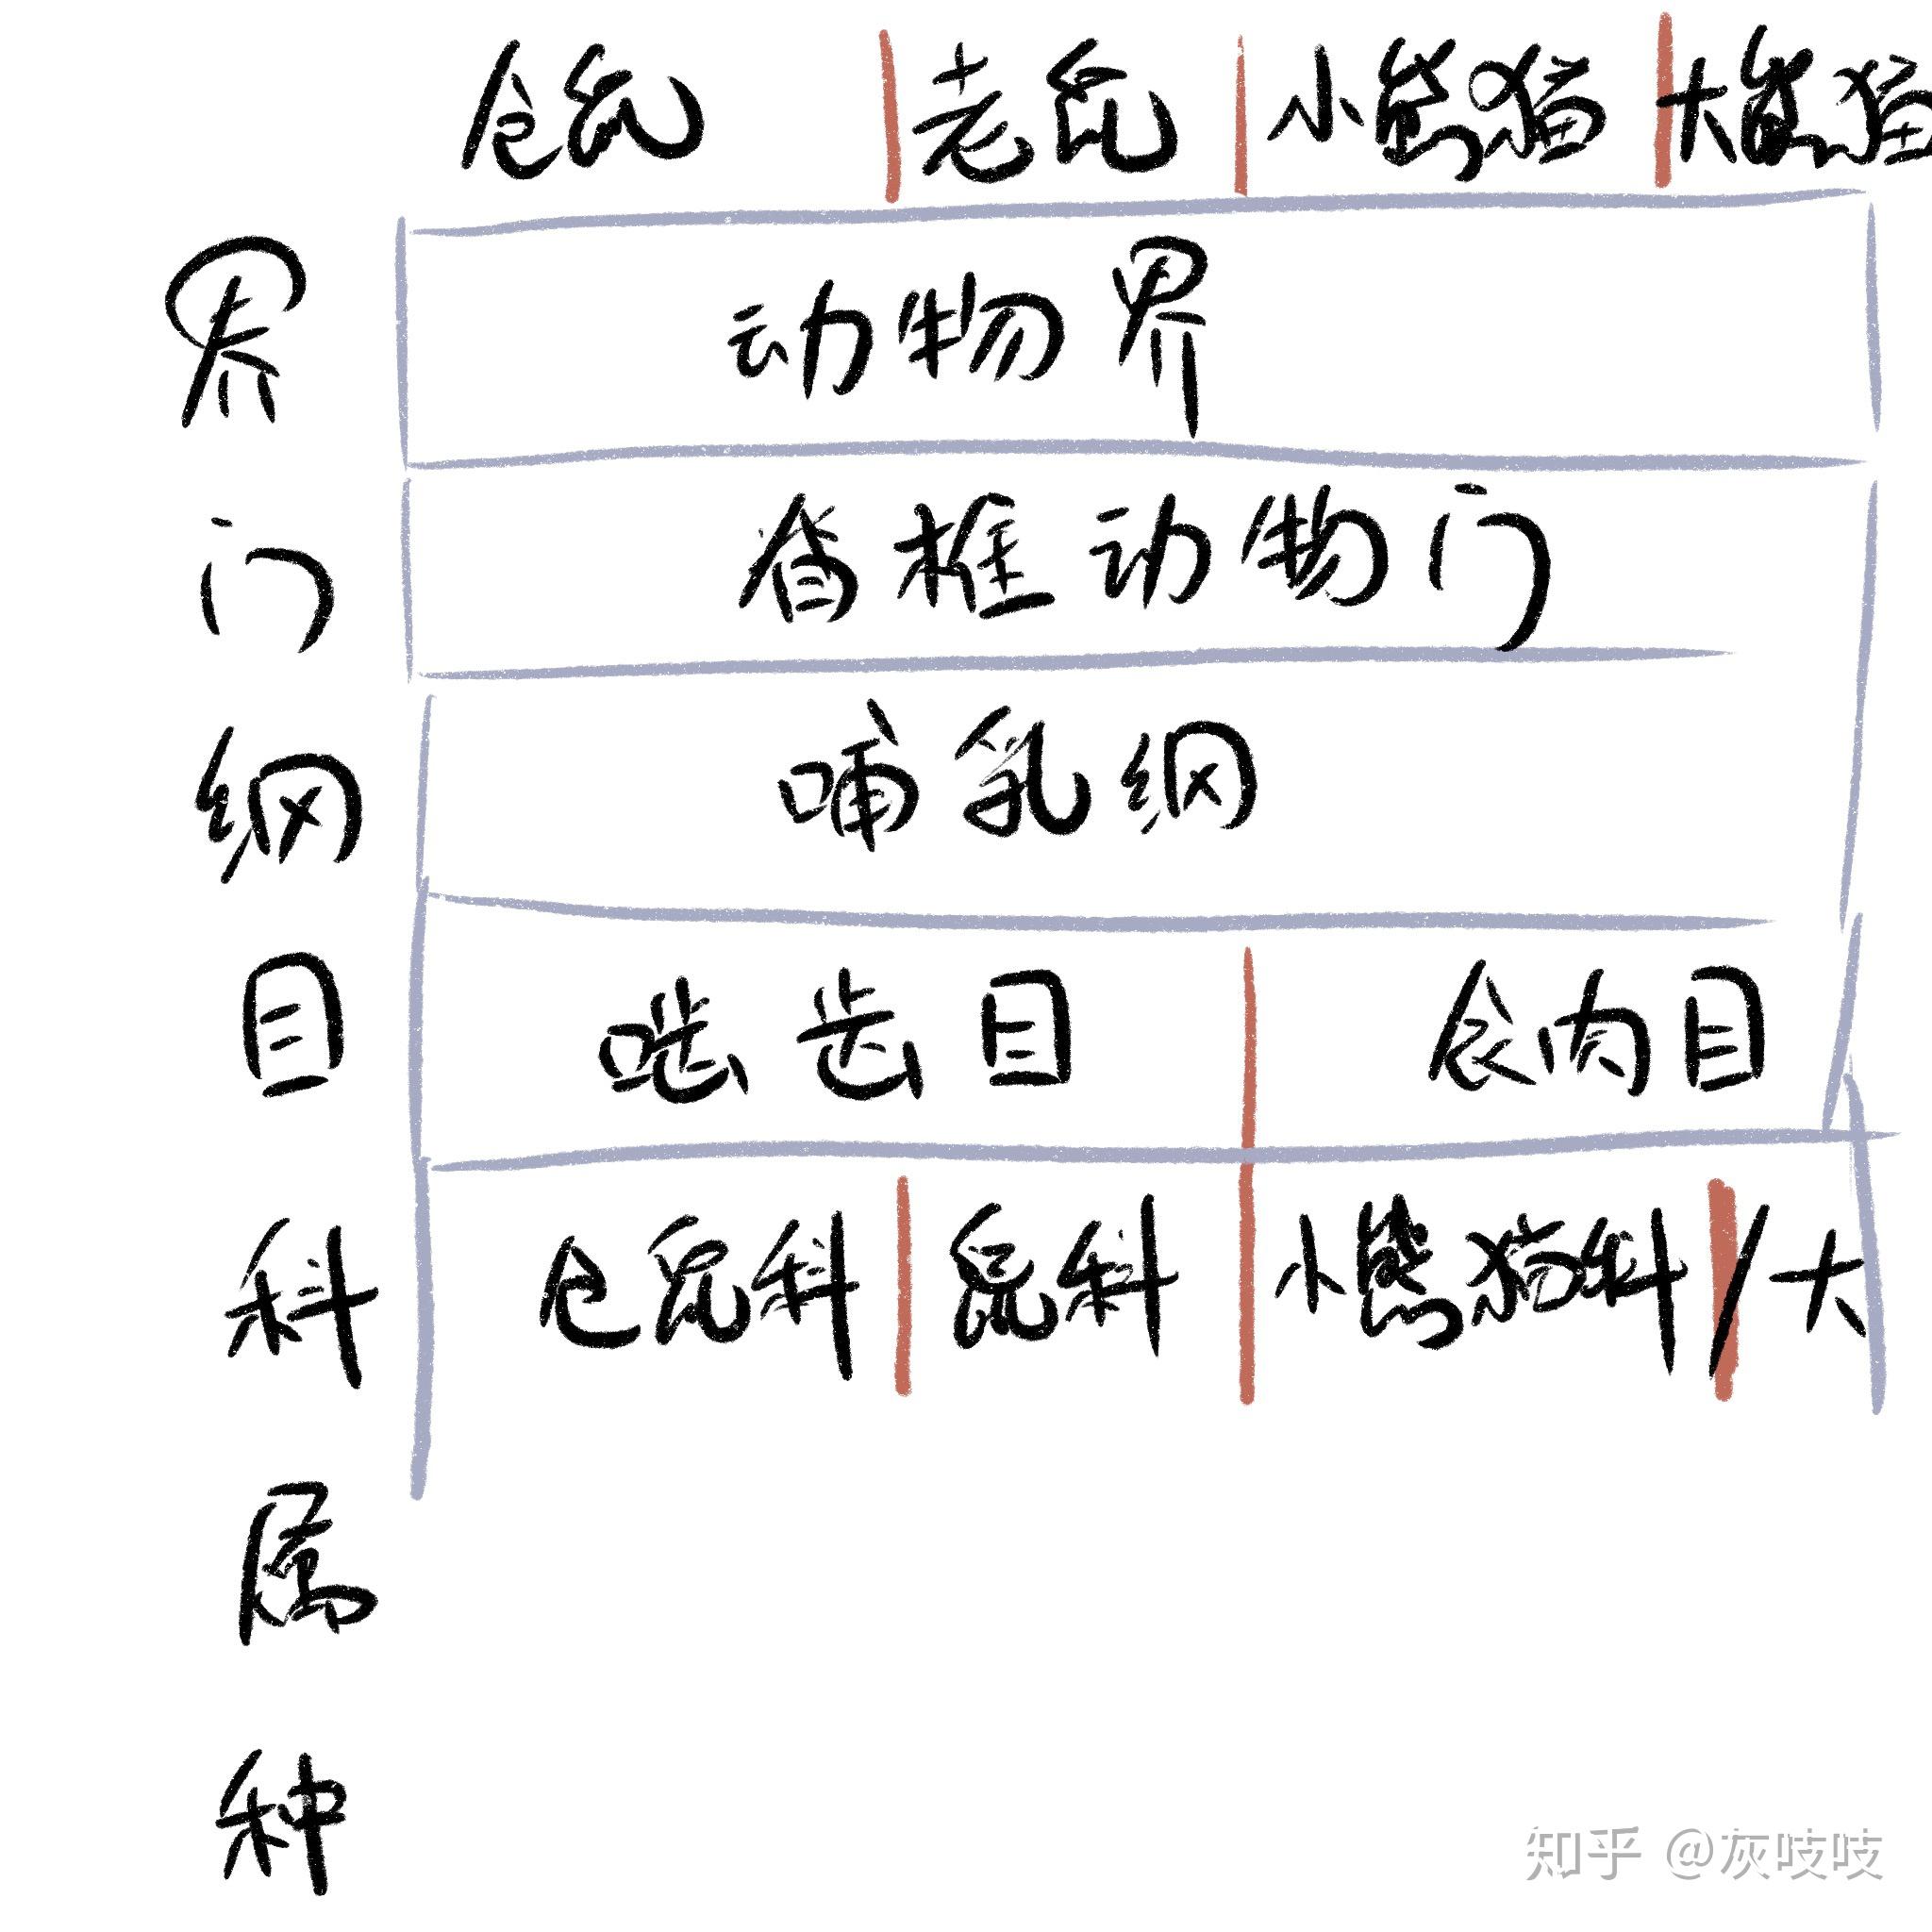 仓鼠 老鼠 小熊猫 大熊猫
界 动物界
门 脊椎动物门
纲 哺乳纲
目 啮齿目 食肉目
科 仓鼠科 鼠科 小熊猫科 / 大
属
种
知乎 @灰吱吱